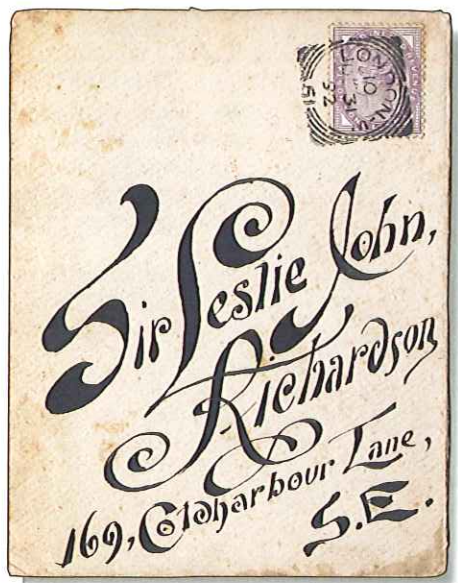 LONDON.W
10
31
92
51
Sir Leslie John,
Richardson
169, Coldharbour Lane,
S.E.